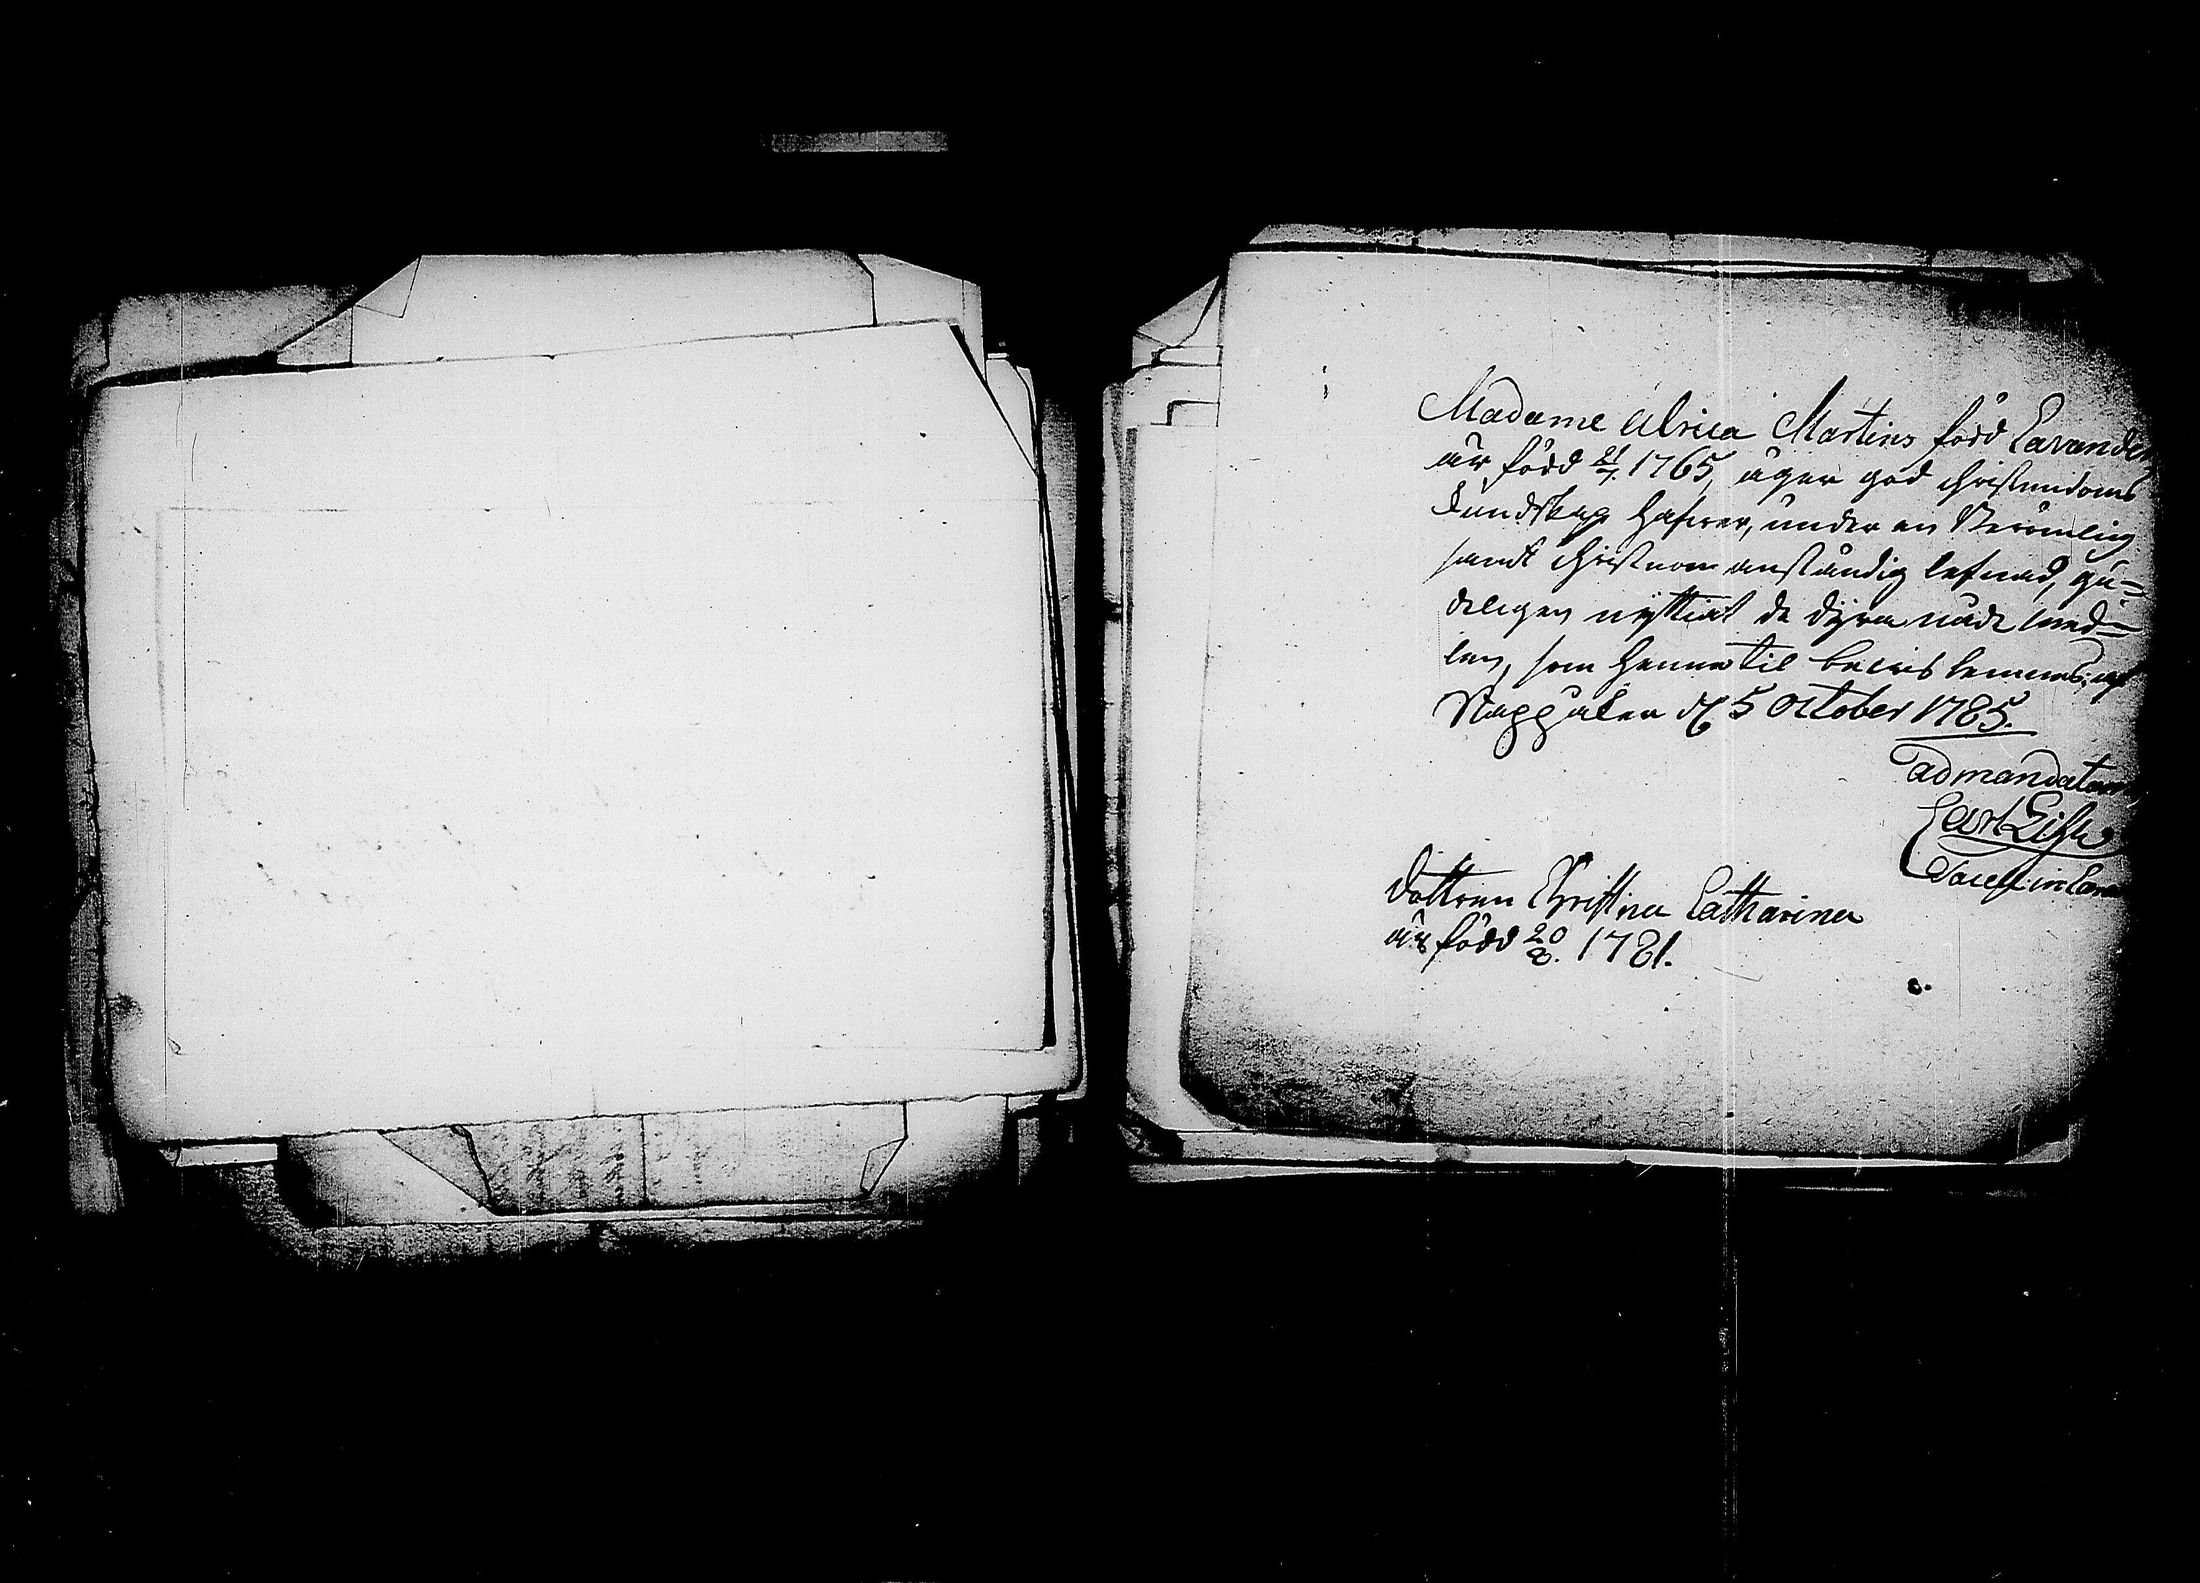 Madame Ulrica Martins född Lavande
är född 21/7. 1765, äger god christendoms
kundskap hafwer, under en berömlig
samt christnom anständig lefnad, gu=
deligen nyttiat de dyra nåde med=
len, som henne til bewis lemnas; af
Nappåker d. 5 October 1785.
ad mandatum
Carl
Sacell: in
dottren Christina Catharina
är född 20/8. 1781.